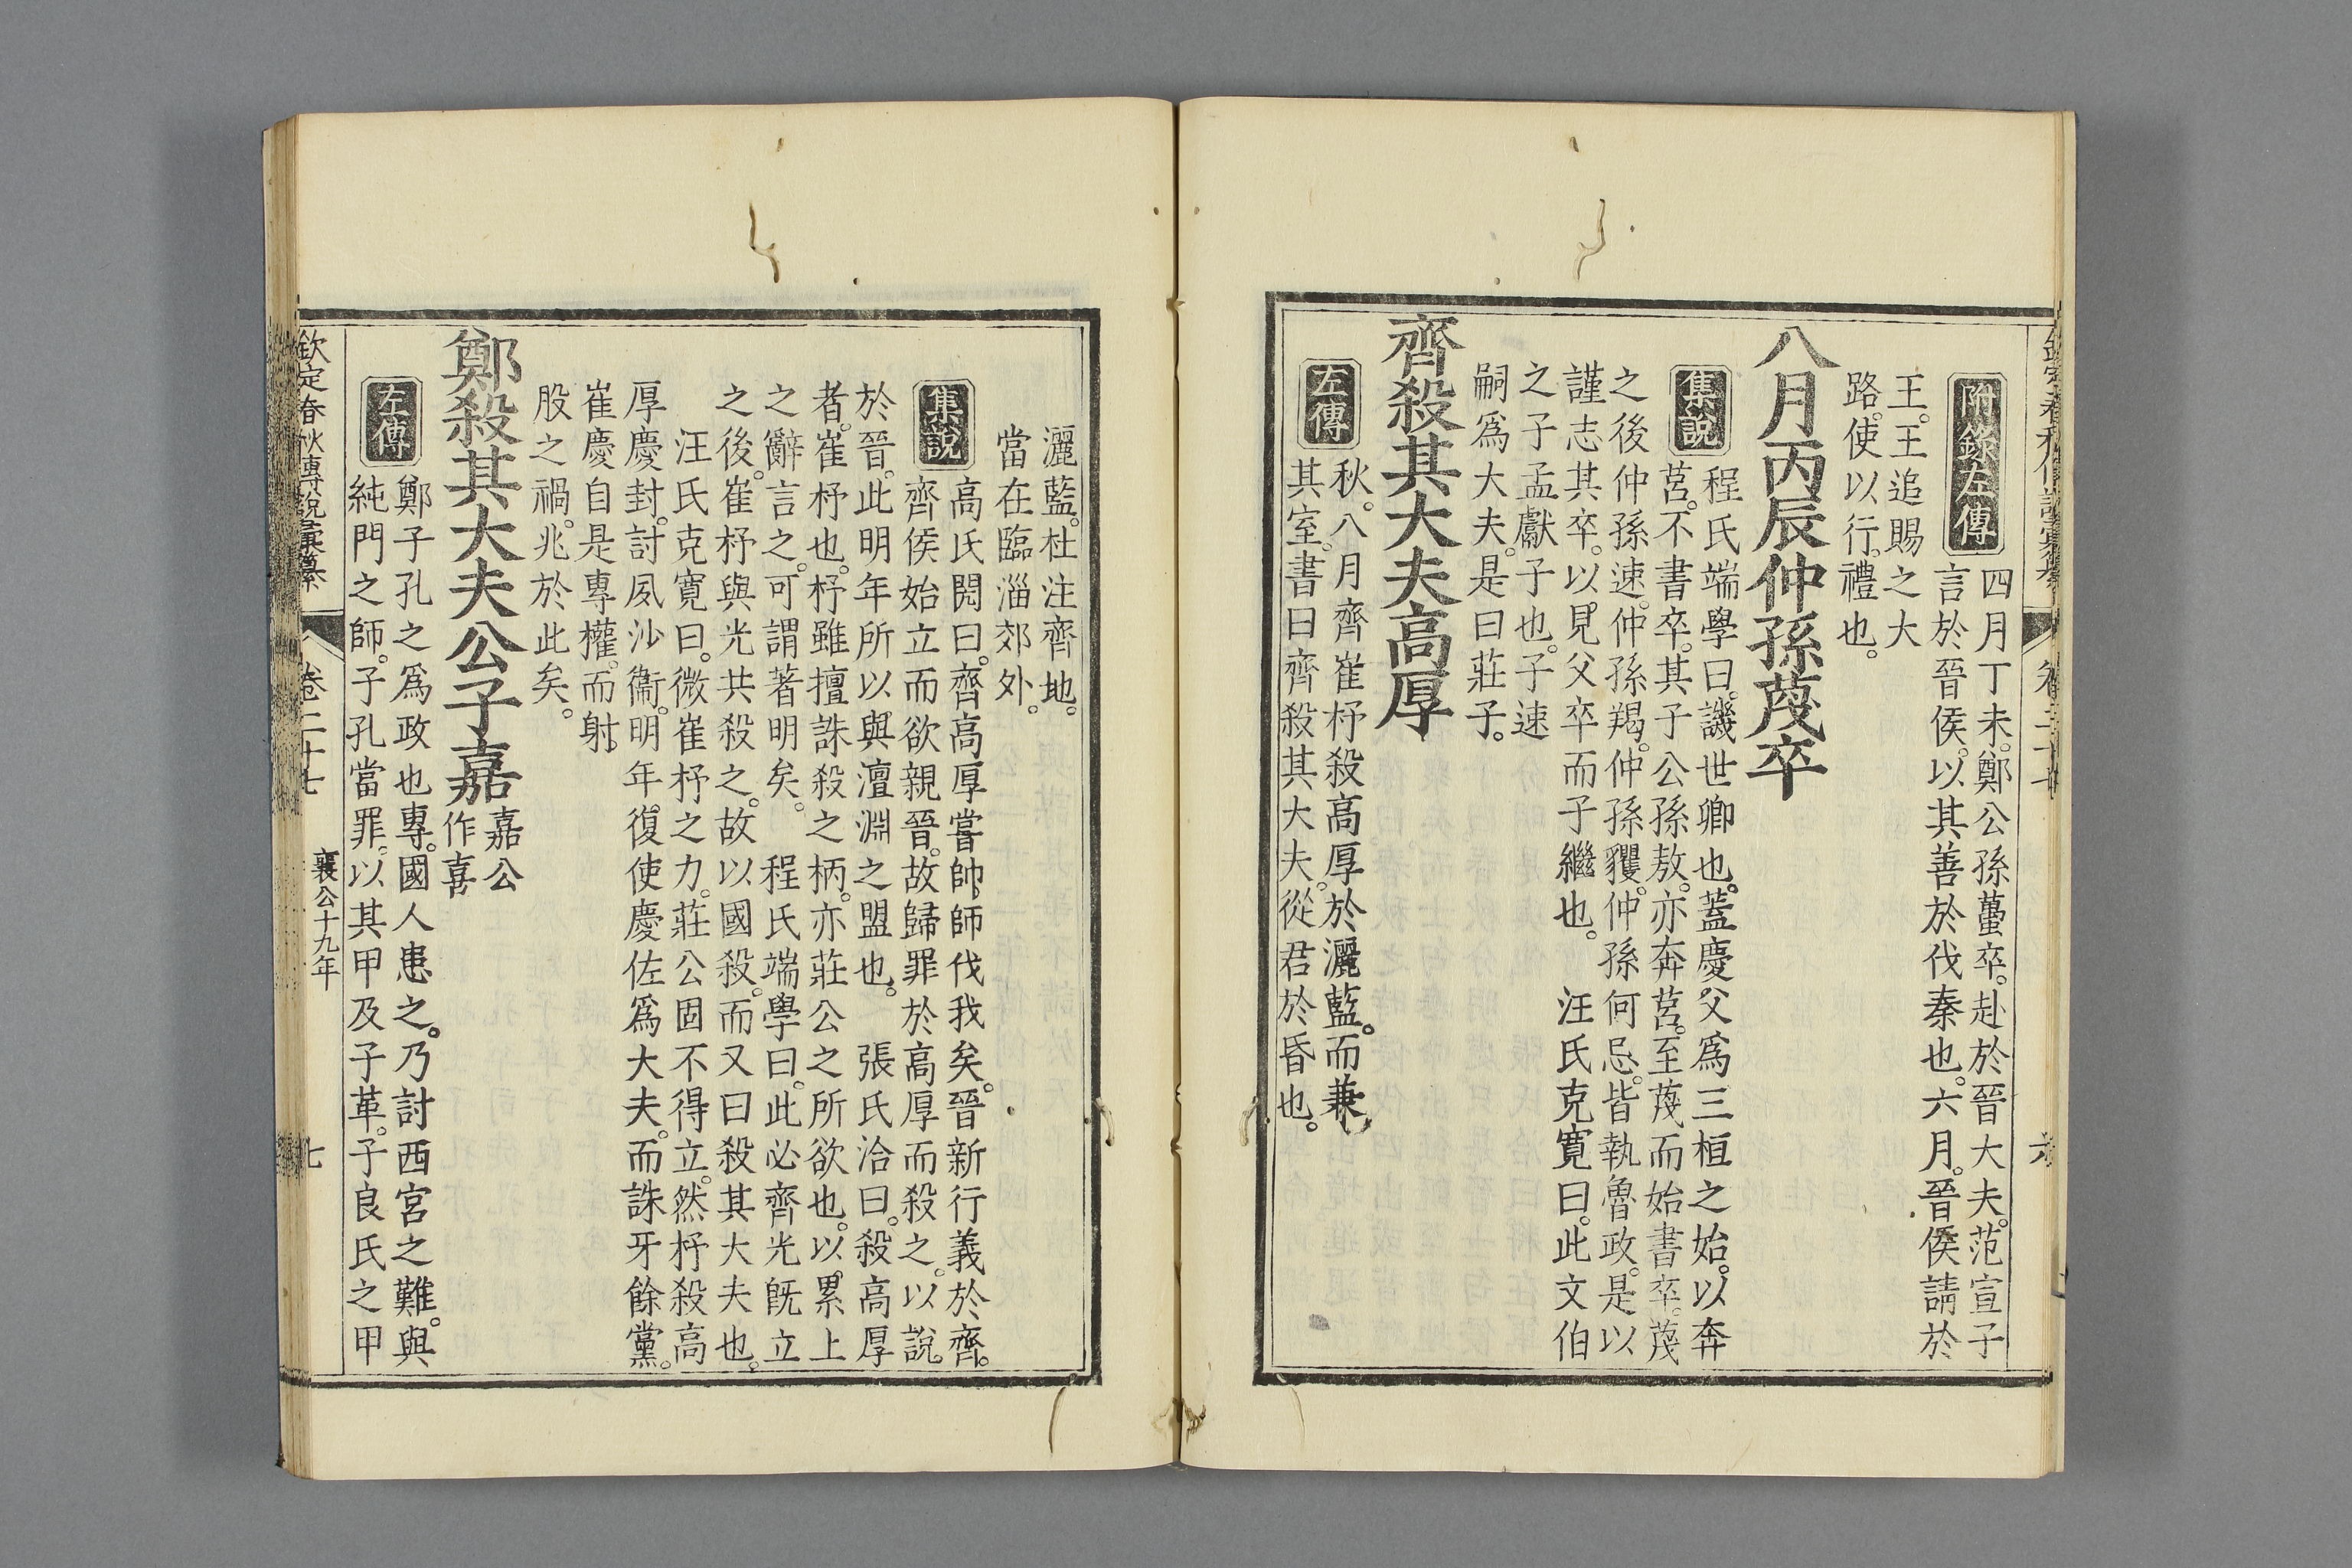 附錄左傳
四月丁未。鄭公孫蠆卒。赴於晉大夫。范宣子
言於晉侯。以其善於伐秦也。六月。晉侯請於
王。王追賜之大
路。使以行。禮也。
八月丙辰仲孫蔑卒
集說
程氏端學曰。譏世卿也。蓋慶父爲三桓之始。以奔
莒。不書卒。其子公孫敖。亦奔莒。至蔑而始書卒。蔑
之後仲孫速。仲孫羯。仲孫貜。仲孫何忌。皆執魯政。是以
謹志其卒。以見父卒而子繼也。 汪氏克寬曰。此文伯
之子孟獻子也。子速
嗣爲大夫。是曰莊子。
齊殺其大夫高厚
左傳
秋。八月齊崔杼殺高厚於灑藍。而兼
其室。書曰齊殺其大夫。從君於昏也。
灑藍。杜注齊地。
當在臨淄郊外。
集說
高氏閌曰。齊高厚嘗帥師伐我矣。晉新行義於齊。
齊侯始立而欲親晉。故歸罪於高厚而殺之。以說。
於晉。此明年所以與澶淵之盟也。 張氏洽曰。殺高厚
者。崔杼也。杼雖擅誅殺之柄。亦莊公之所欲也。以累上
之辭言之。可謂著明矣。 程氏端學曰。此必齊光旣立
之後。崔杼與光共殺之。故以國殺。而又曰殺其大夫也。
汪氏克寬曰。微崔杼之力。莊公固不得立。然杼殺高
厚慶封。討夙沙衞。明年。復使慶佐爲大夫。而誅牙餘黨。
崔慶自是專權。而射
股之禍。兆於此矣。
鄭殺其大夫公子嘉
嘉公
作喜
左傳
鄭子孔之爲政也專。國人患之。乃討西宮之難。與
純門之師。子孔當罪。以其甲及子革。子良氏之甲
欽定春秋傳說彙纂
卷二十七
襄公十九年
七